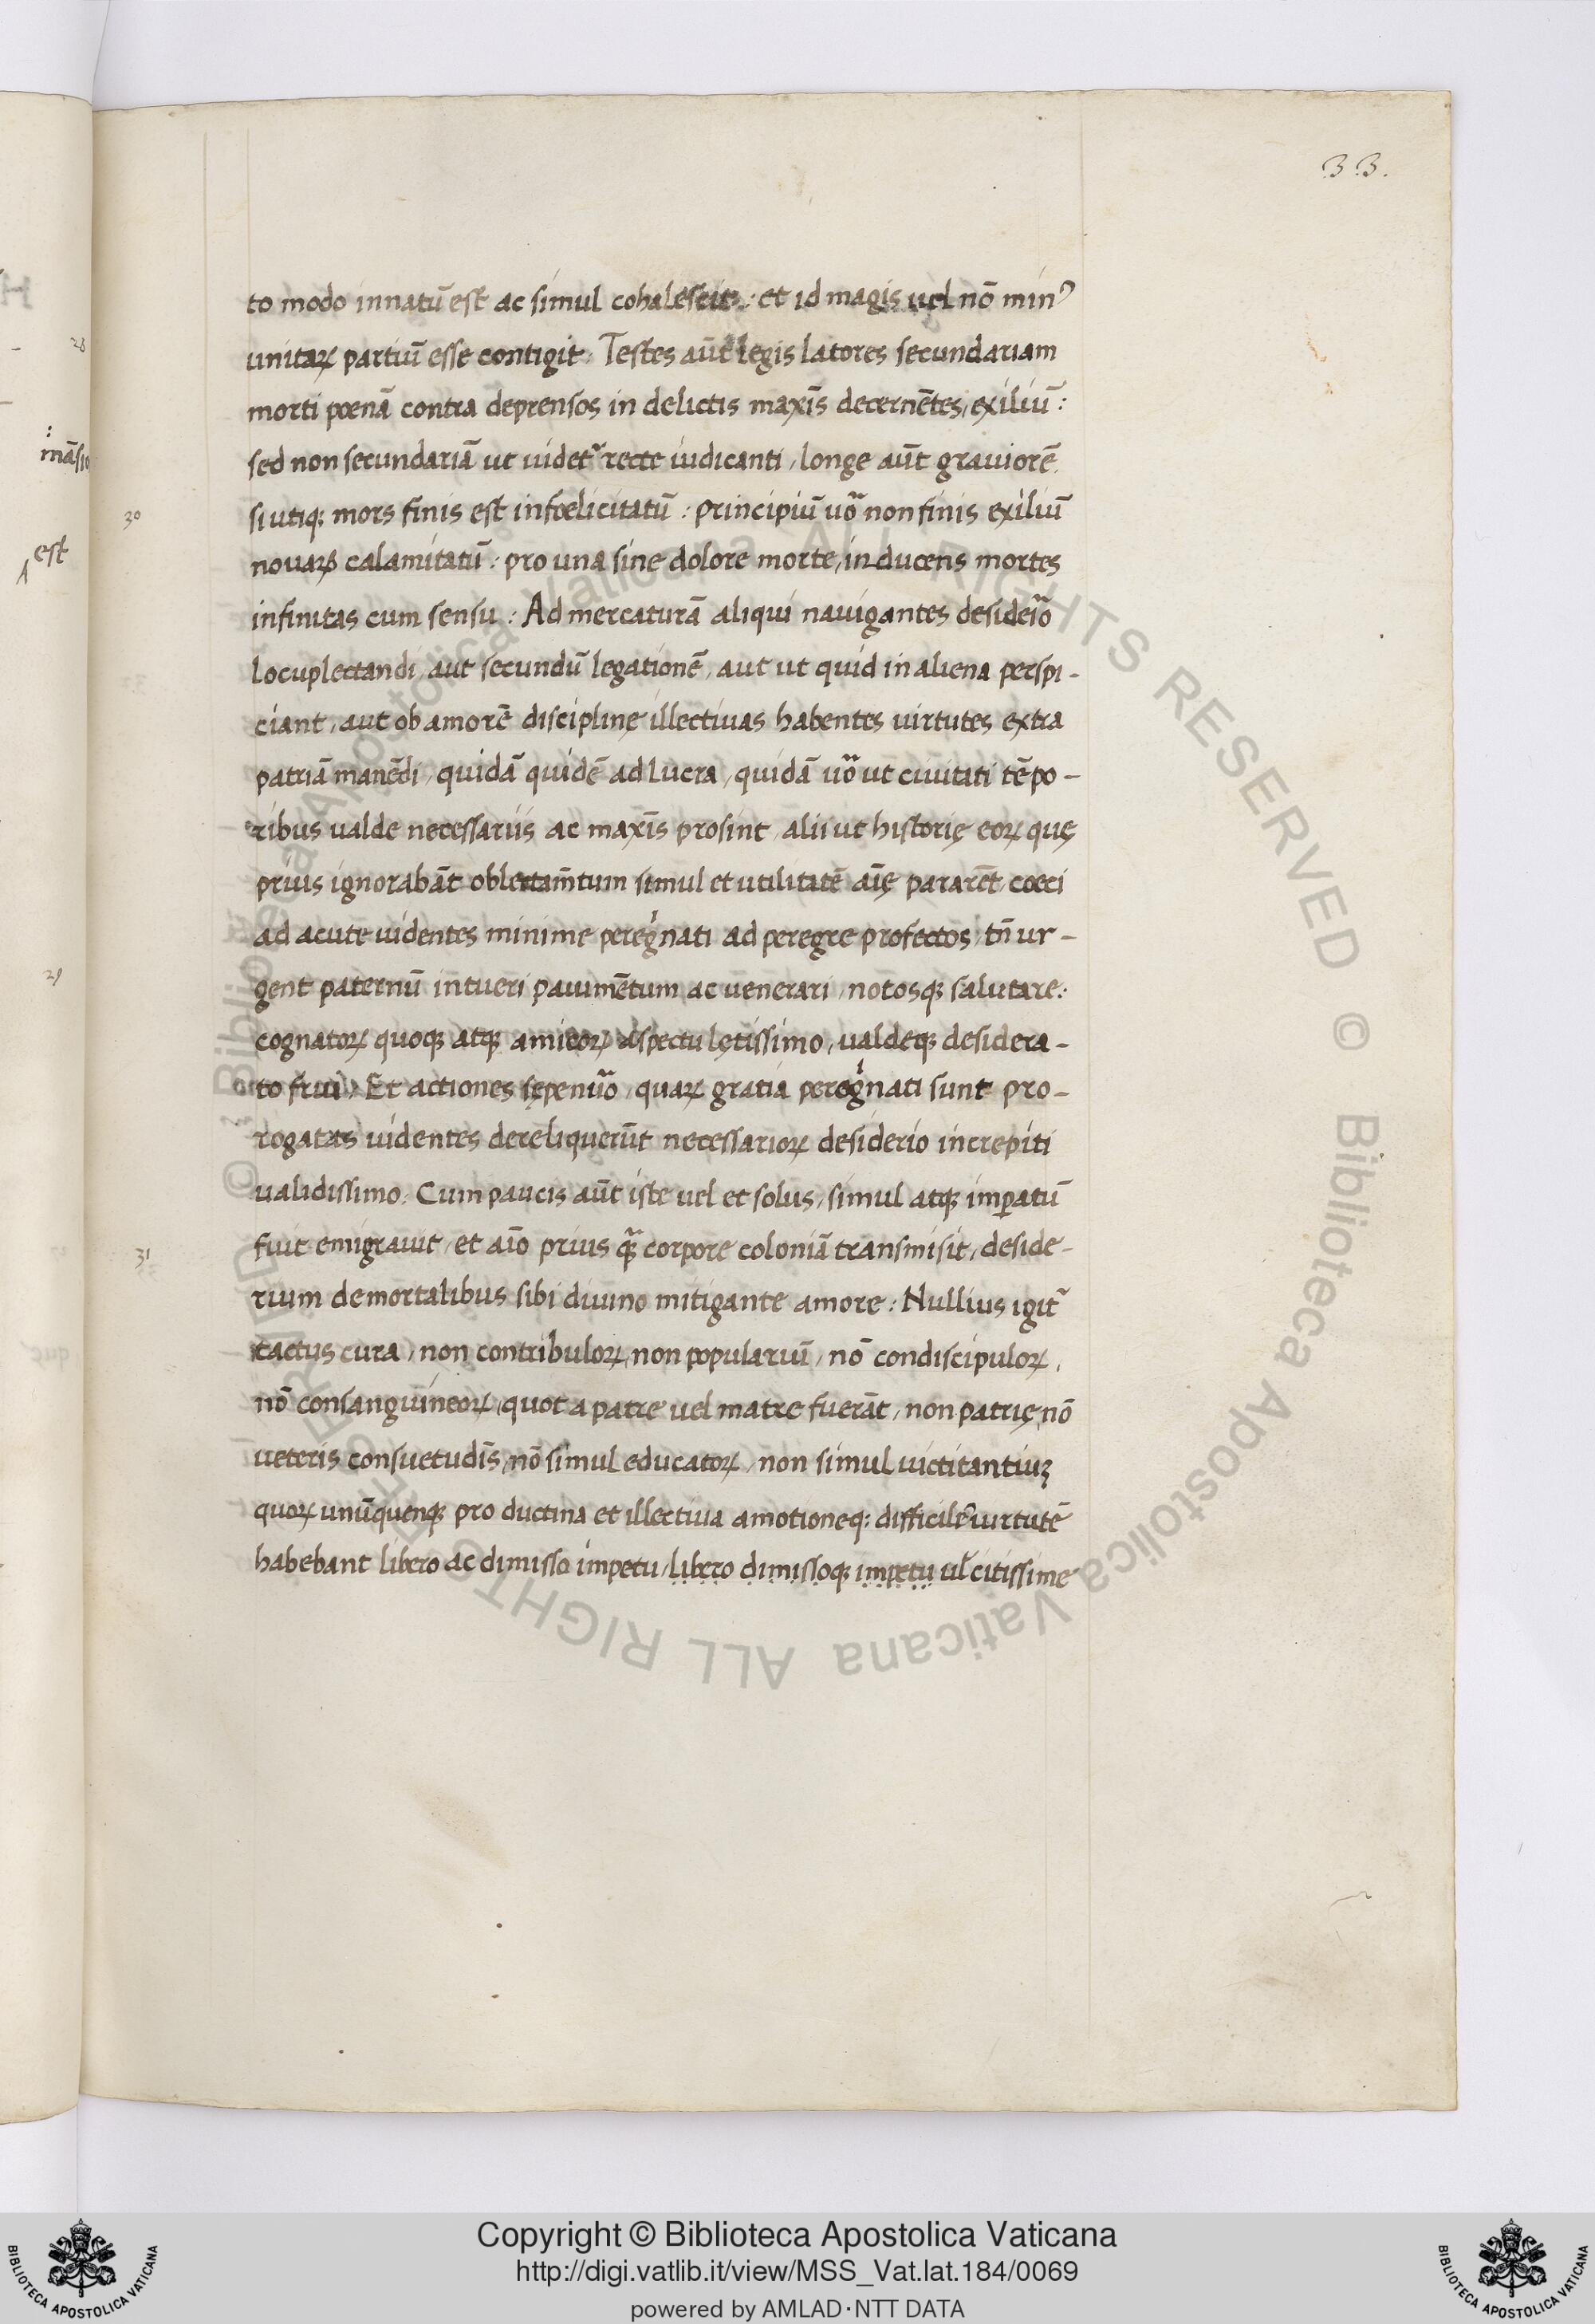 33.
to modo innatū est ac simul cohalescit: et id magis uel nō minꝰ
unitaꝝ partiū esse contigit: Testes aūt legis latores secundariam
morti pœnā contra deprensos in delictis maxīs decernētes, exiliū:
sed non secundariā ut uidet᷑ recte iudicanti, longe aūt grauiorē.
si utiqꝫ mors finis est infœlicitatū: principiū uo᷑ non finis exiliū
nouaꝝ calamitatū: pro una sine dolore morte, inducens mortes
infinitas cum sensu: Ad mercaturā aliqui nauigantes desideıo᷑
locuplectandi, aut secundū legationē, aut ut quid in aliena perspi-
ciant, aut ob amorē disciplinę illectiuas habentes uirtutes extra
patriā manēdi, quidā quidē ad lucra, quidā uo᷑ ut ciuitati tēpo-
ribus ualde necessariis ac maxīs prosint, alii ut historię eoꝝ quę
prius ignorabāt oblectam̄tum simul et utilitatē aīę pararēt, cœci
ad acute uidentes minime peregͥnati ad peregre profectos, tn̄ ur-
gent paternū intueri pauimētum ac uenerari, notosqꝫ salutare:
cognatoꝝ quoqꝫ atqꝫ amicoꝝ aspectu lętissimo, ualdeqꝫ desidera-
to frui, Et actiones sępenuo᷑, quaꝝ gratia peregͥnati sunt pro-
rogatas uidentes dereliquerūt necessarioꝝ desiderio increpiti
ualidissimo. Cum paucis aūt iste uel et solus, simul atqꝫ imꝑatū
fuit emigrauit, et aīo prius qᷓ corpore coloniā transmisit, deside-
rium de mortalibus sibi diuino mitigante amore: Nullius igit᷑
tactus cura, non contribuloꝝ, non populariū, nō condiscipuloꝝ,
nō consanguineoꝝ, quot a patre uel matre fuerāt, non patrię, nō
ueteris consuetudīs, nō simul educatoꝝ, non simul uictitantiuꝫ
quoꝝ unūquenqꝫ pro ductina et illectiua amotioneqꝫ difficilē uirtutē
habebant libero ac dimisso impetu, libero dimissoqꝫ impetu ul̄ citissime
28
mās̄io
est
29
30
31
Copyright © Biblioteca Apostolica Vaticana
http://digi.vatlib.it/view/MSS_Vat.lat.184/0069
powered by AMLAD·NTT DATA
BIBLIOTECA APOSTOLICA VATICANA
BIBLIOTECA APOSTOLICA VATICANA
© Biblioteca Apostolica Vaticana ALL RIGHTS RESERVED © Biblioteca Apostolica Vaticana ALL RIGHTS RESERVED